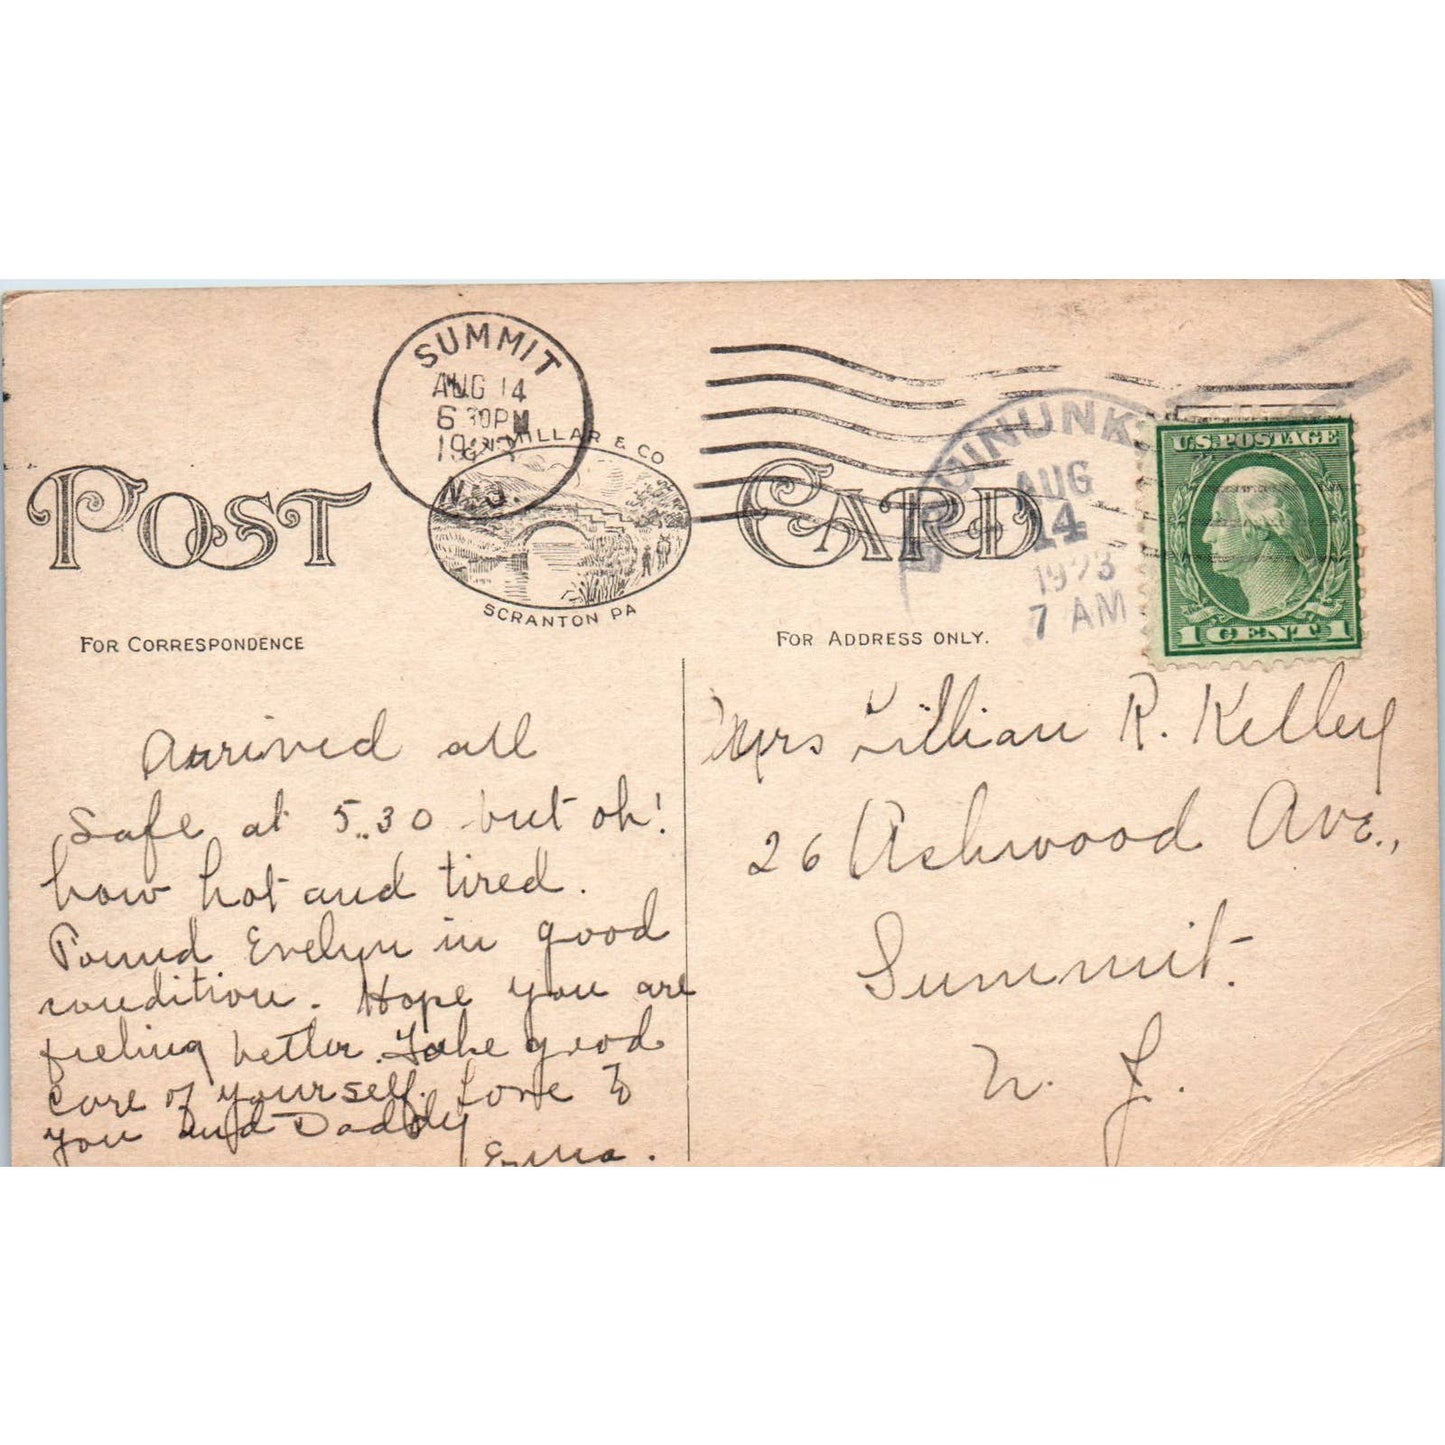 SUMMIT
AUG 14
6 30PM
19
N.J.
MILLAR & CO
SCRANTON PA
POST CARD
AUG
14
1923
7 AM
U.S. POSTAGE
1 CENT 1
FOR CORRESPONDENCE
FOR ADDRESS ONLY.
Arrived all
safe at 5.30 but oh!
how hot and tired.
Found Evelyn in good
condition. Hope you are
feeling better. Take good
care of yourself. Love to
you and Daddy
Mrs Lillian R. Kelley
26 Ashwood Ave.,
Summit.
N. J.